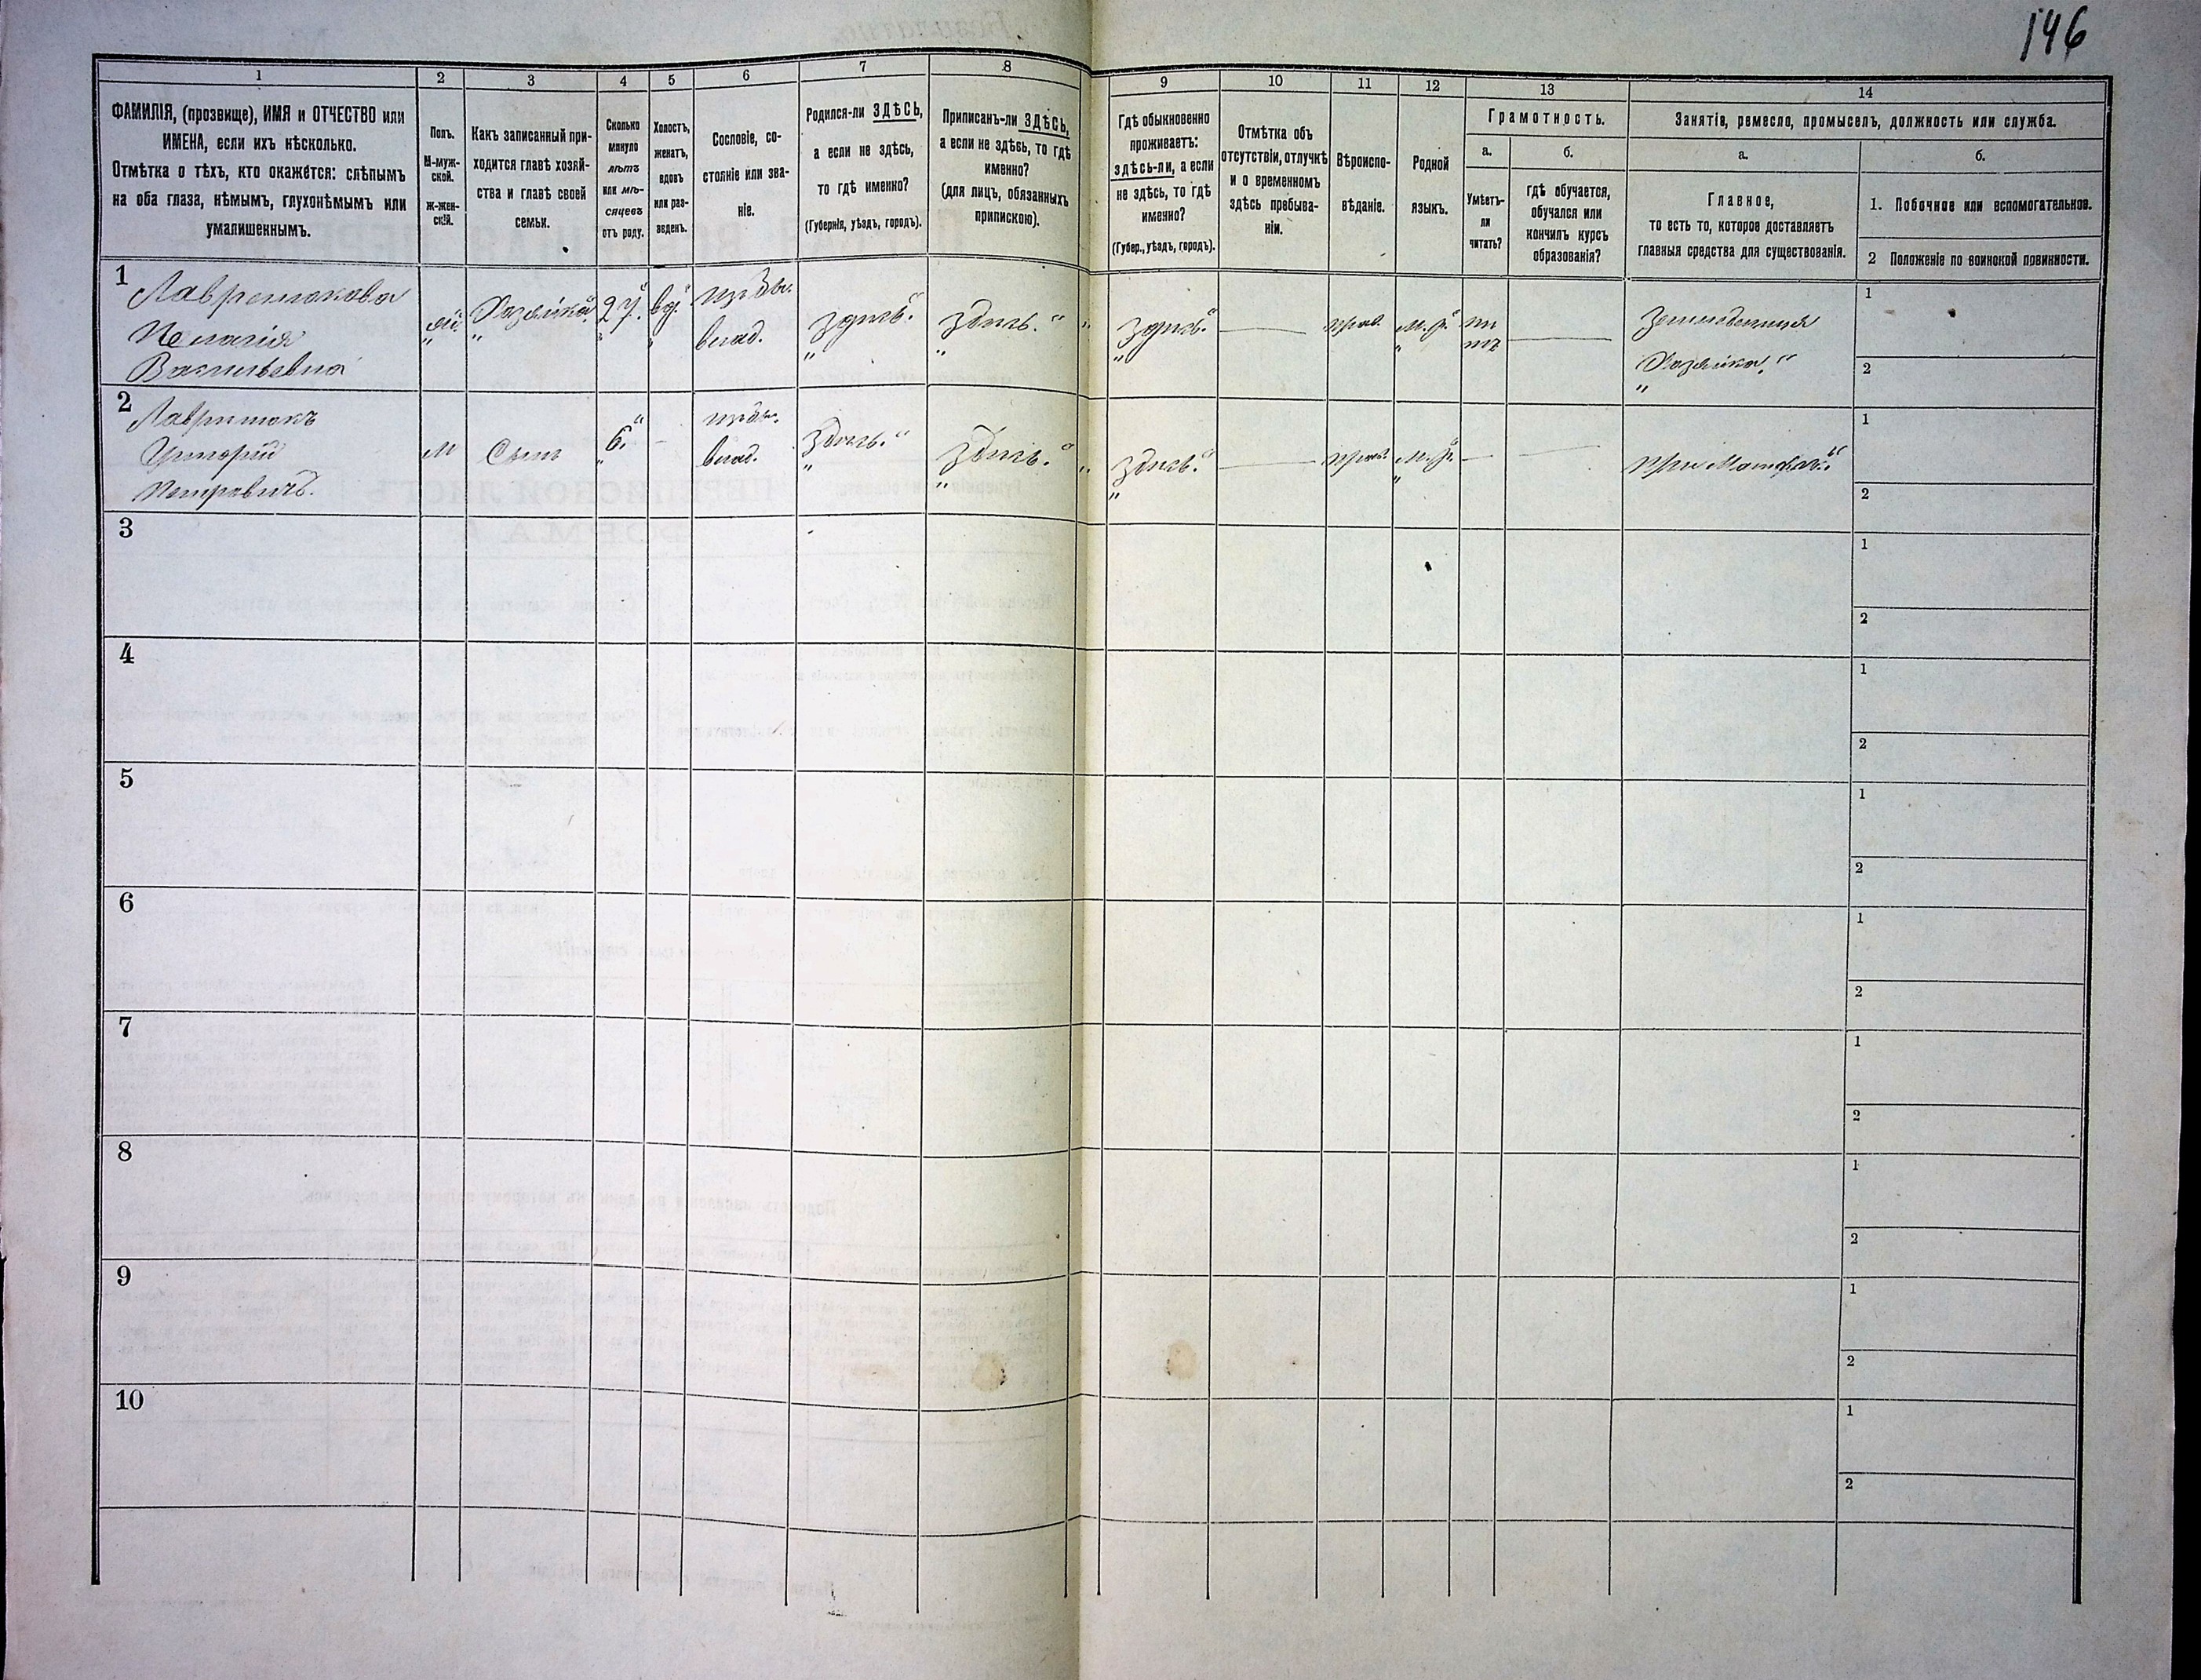 146
1
2
3
4
5
6
7
8
9
10
11
12
13
14
ФАМИЛІЯ, (прозвище), ИМЯ и ОТЧЕСТВО или
ИМЕНА, если ихъ нѣсколько.
Отмѣтка о тѣхъ, кто окажется: слѣпымъ
на оба глаза, нѣмымъ, глухонѣмымъ или
умалишеннымъ.
Полъ.
М-муж-
ской.
Ж-жен-
скій.
Какъ записанный при-
ходится главѣ хозяй-
ства и главѣ своей
семьи.
Сколько
минуло
лѣтъ
или мѣ-
сяцевъ
отъ роду.
Холостъ,
женатъ,
вдовъ
или раз-
веденъ.
Сословіе, со-
стояніе или зва-
ніе.
Родился-ли ЗДѢСЬ,
а если не здѣсь,
то гдѣ именно?
(Губернія, уѣздъ, городъ).
Приписанъ-ли ЗДѢСЬ,
а если не здѣсь, то гдѣ
именно?
(для лицъ, обязанныхъ
припискою).
Гдѣ обыкновенно
проживаетъ:
здѣсь-ли, а если
не здѣсь, то гдѣ
именно?
(Губер., уѣздъ, городъ).
Отмѣтка объ
отсутствіи, отлучкѣ
и о временномъ
здѣсь пребыва-
ніи.
Вѣроиспо-
вѣданіе.
Родной
языкъ.
Грамотность.
а.
Умѣетъ-
ли
читать?
б.
гдѣ обучается,
обучался или
кончилъ курсъ
образованія?
Занятіе, ремесло, промыселъ, должность или служба.
а.
Главное,
то есть то, которое доставляетъ
главныя средства для существованія.
б.
1. Побочное или вспомогательное.
2 Положеніе по воинской повинности.
1
Пелагія
Васильевна
Хозяйка
27.
вд.
влад.
здѣсь.
здѣсь.
здѣсь.
прав.
м. р.
нѣ
тъ
Хозяйка
1
2
2
Григорій
Петровичъ.
М
Сынъ
6.
—
влад.
здѣсь.
здѣсь.
здѣсь.
прав.
м. р.
—
при Матери.
1
2
3
1
2
4
1
2
5
1
2
6
1
2
7
1
2
8
1
2
9
1
2
10
1
2